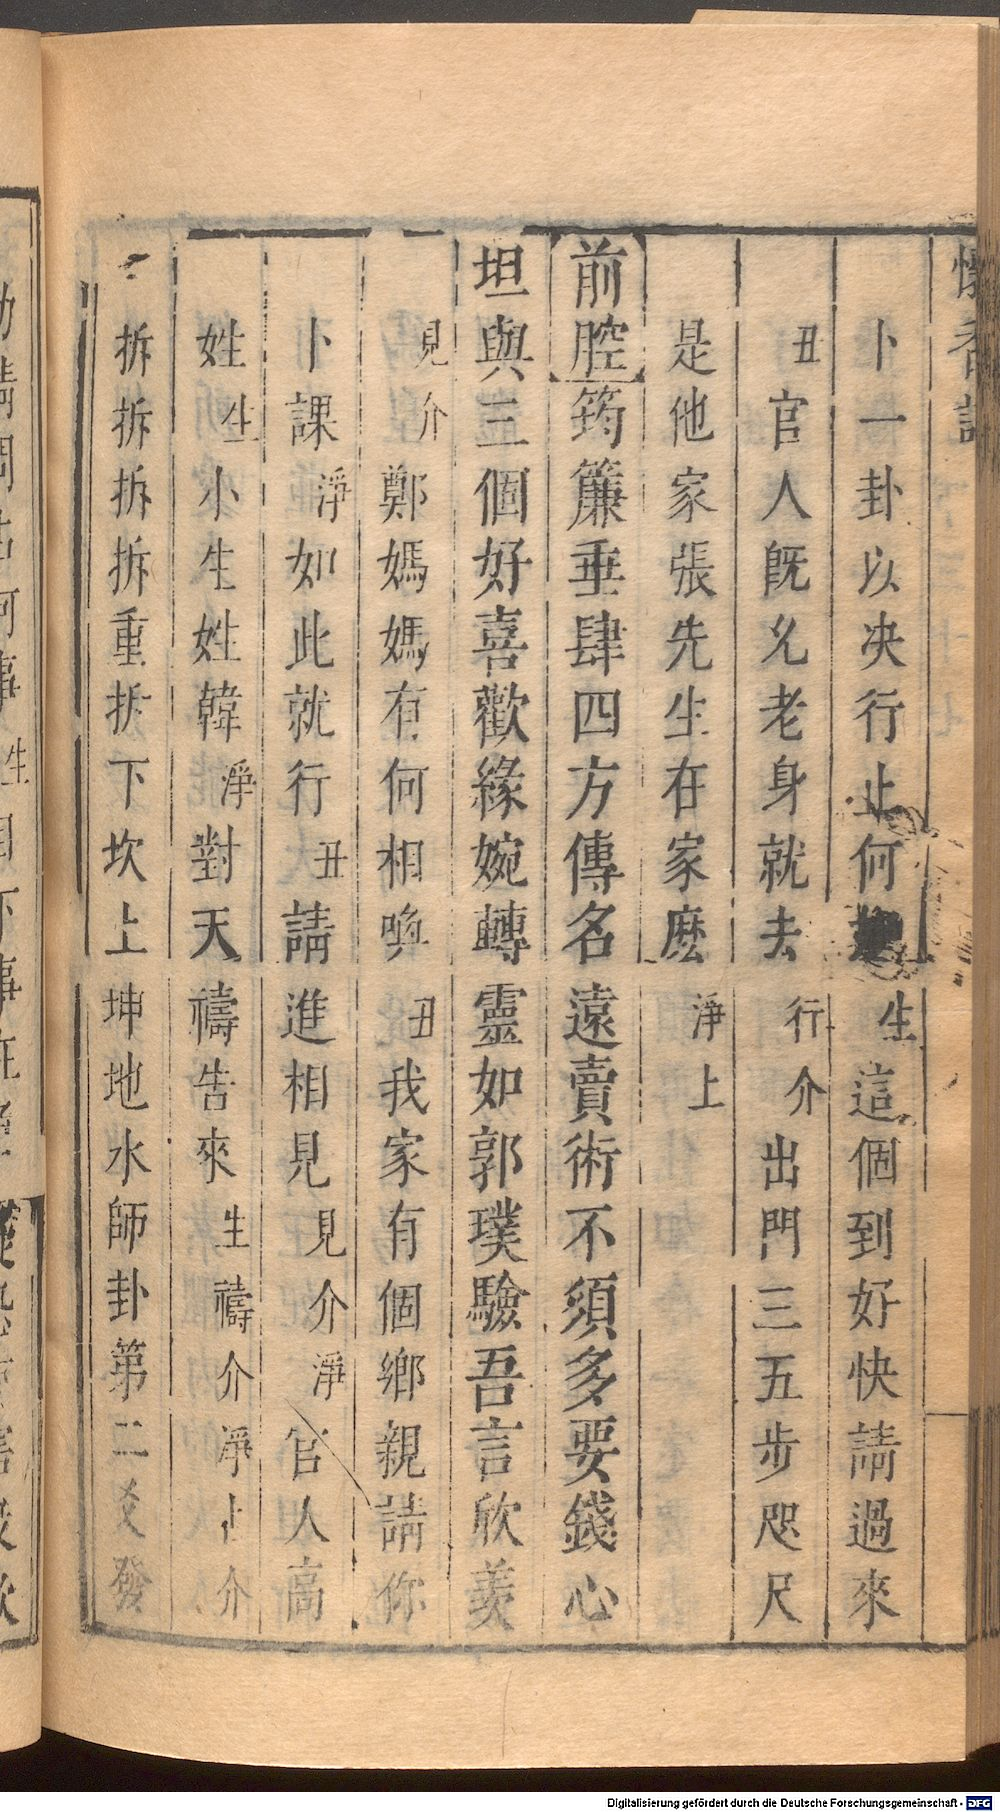 懷香記
卜一卦以决行止何生這個到好快請過來
丑官人既允老身就去行介出門三五步咫尺
是他家張先生在家麽淨上
前腔筠簾垂肆四方傳名遠賣術不須多要錢心
坦與三個好喜歡緣婉轉靈如郭璞驗吾言欣羨
見介鄭媽媽有何相喚丑我家有個鄉親請你
卜課淨如此就行丑請進相見見介淨官人高
姓生小生姓韓淨對天禱告來生禱介淨卜介
拆拆拆拆重拆下坎上坤地水師卦第二爻發
Digitalisierung gefördert durch die Deutsche Forschungsgemeinschaft - DFG